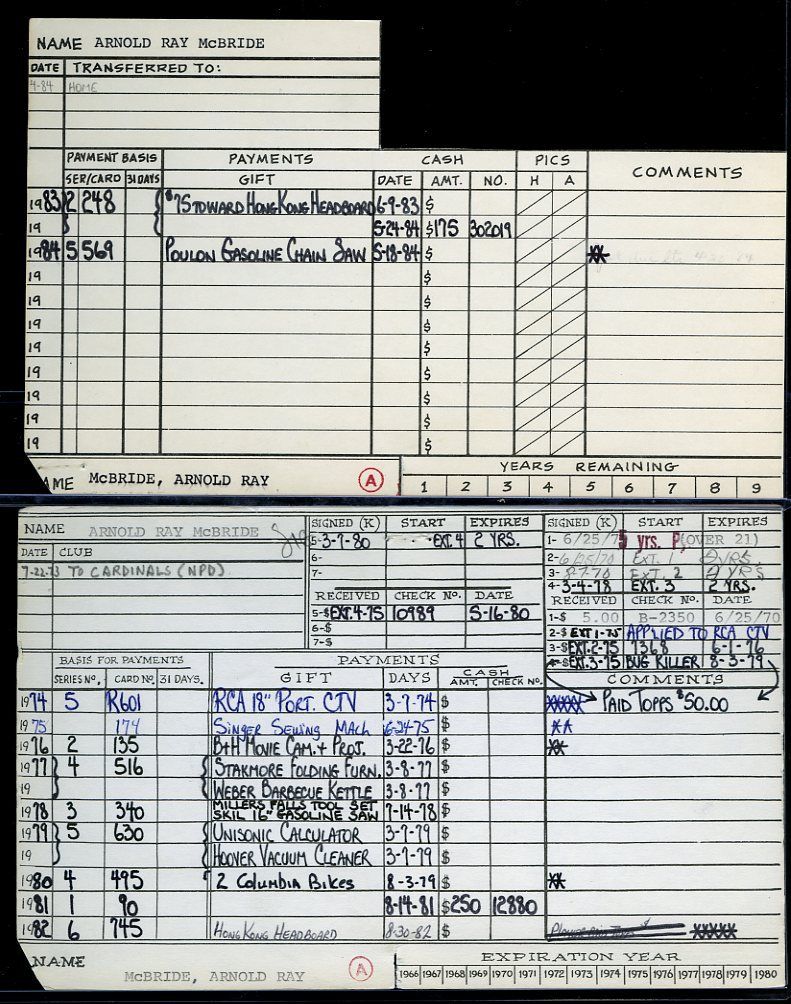 NAME ARNOLD RAY McBRIDE
DATE TRANSFERRED TO:
4-84 HOME
PAYMENT BASIS PAYMENTS CASH PICS COMMENTS
SER/CARD 31 DAYS GIFT DATE AMT. NO. H A
1983 2 248 $75 TOWARD HONG KONG HEADBOARD 6-9-83 $
19 5-24-84 $175 302019
1984 5 569 POULON GASOLINE CHAIN SAW 5-18-84 $ XX
19 $
19 $
19 $
19 $
19 $
19 $
19 $
19 $
YEARS REMAINING
NAME McBRIDE, ARNOLD RAY A 1 2 3 4 5 6 7 8 9
NAME ARNOLD RAY McBRIDE
DATE CLUB
7-22-73 TO CARDINALS (NPD)
SIGNED (K) START EXPIRES
5-3-7-80 EXT. 4 2 YRS.
6-
7-
RECEIVED CHECK NO. DATE
5-$EXT.4-75 10989 5-16-80
6-$
7-$
SIGNED (K) START EXPIRES
1- 6/25/7 5 yrs. P(OVER 21)
2-6/25/70 EXT. 1 2 YRS.
3- EXT. 2 2 YRS.
4-3-4-78 EXT. 3 2 YRS.
RECEIVED CHECK NO. DATE
1-$ 5.00 B-2350 6/25/70
2-$ EXT 1-75 APPLIED TO RCA CTV
3-$EXT.2-75 7368 6-1-76
4-$EXT.3-75 BUG KILLER 8-3-79
BASIS FOR PAYMENTS PAYMENTS COMMENTS
SERIES NO, CARD NO, 31 DAYS. GIFT DAYS CASH AMT. CHECK NO.
1974 5 R601 RCA 18" PORT. CTV 3-7-74 $ XXXXX PAID TOPPS $50.00
1975 174 SINGER SEWING MACH 6-24-75 $ XX
1976 2 135 B+H MOVIE CAM.+ PROJ. 3-22-76 $ XX
1977 4 516 STAKMORE FOLDING FURN. 3-8-77 $
19 WEBER BARBECUE KETTLE 3-8-77 $
1978 3 340 MILLERS FALLS TOOL SET SKIL 16" GASOLINE SAW 7-14-78 $
1979 5 630 UNISONIC CALCULATOR 3-7-79 $
19 HOOVER VACUUM CLEANER 3-7-79 $
1980 4 495 2 COLUMBIA BIKES 8-3-79 $ XX
1981 1 90 8-14-81 $250 12880
1982 6 745 HONG KONG HEADBOARD 8-30-82 $ XXXXX
NAME McBRIDE, ARNOLD RAY A
EXPIRATION YEAR
1966 1967 1968 1969 1970 1971 1972 1973 1974 1975 1976 1977 1978 1979 1980